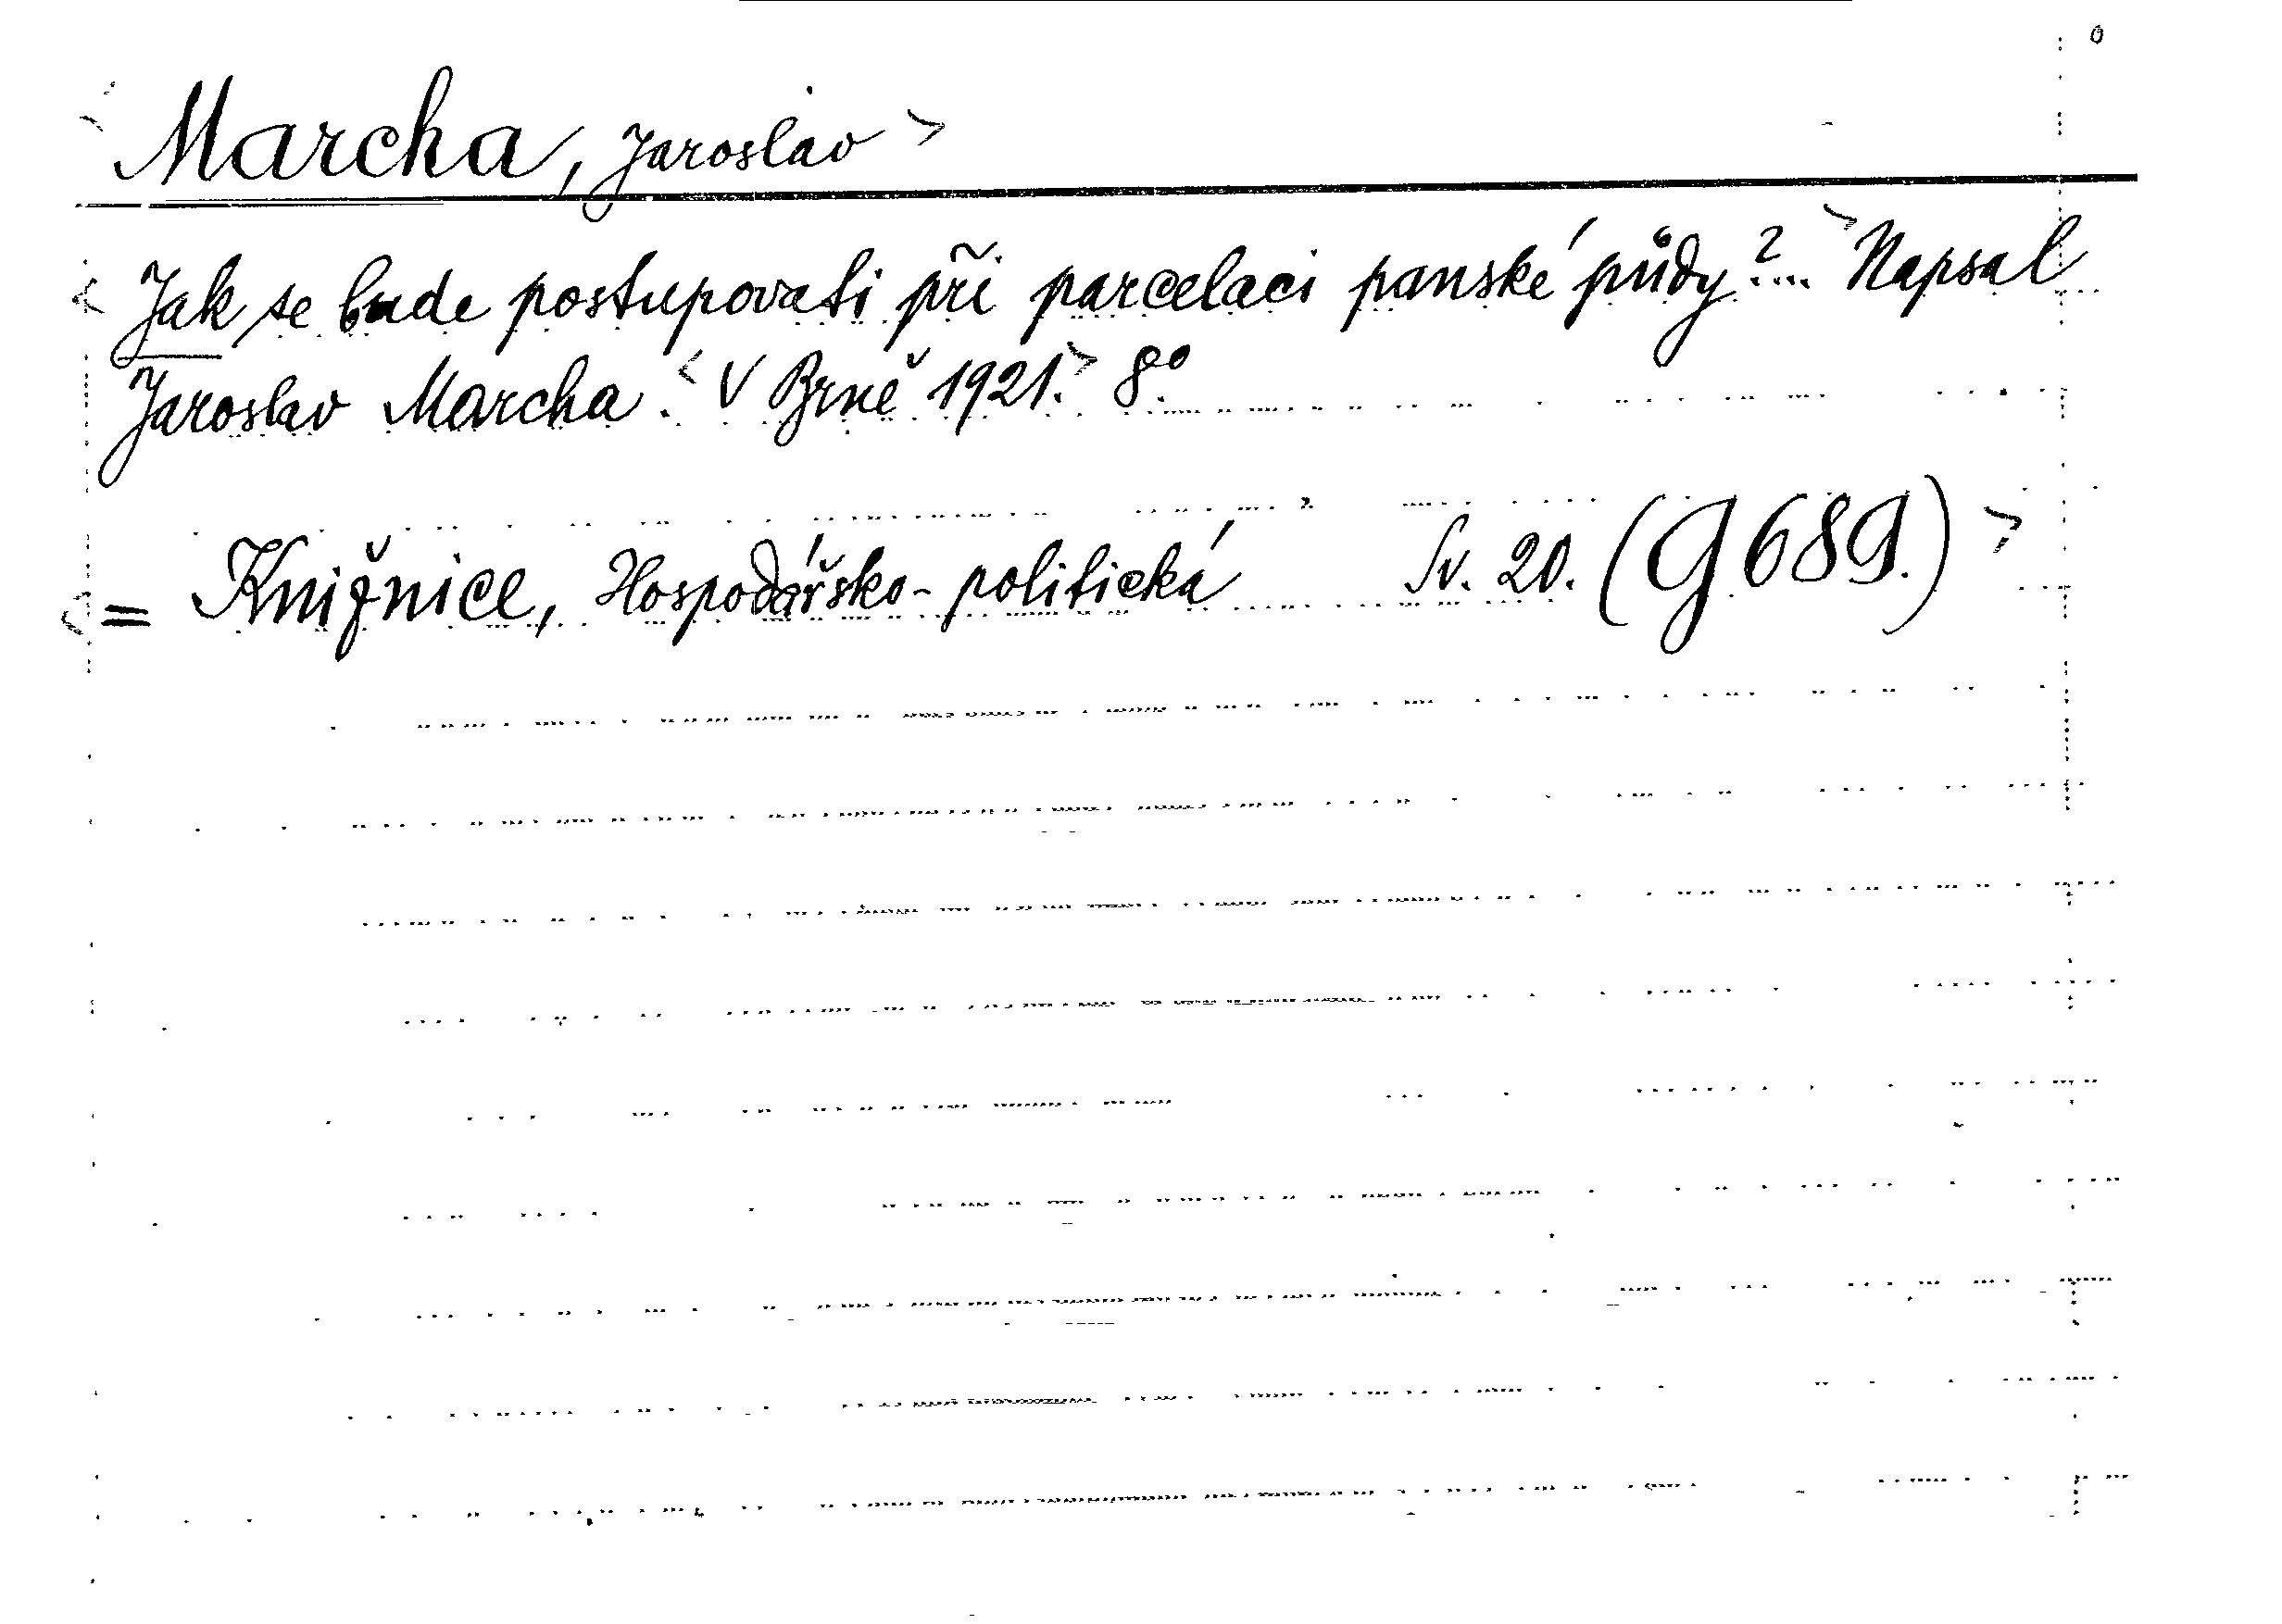 < Marcha, Jaroslav >
< Jak se bude postupovati při parcelaci panské půdy?... > Napsal
Jaroslav Marcha. < V Brně 1921. > 8°.
< = Knižnice, Hospodářsko-politická Sv. 20. (G 689.) >